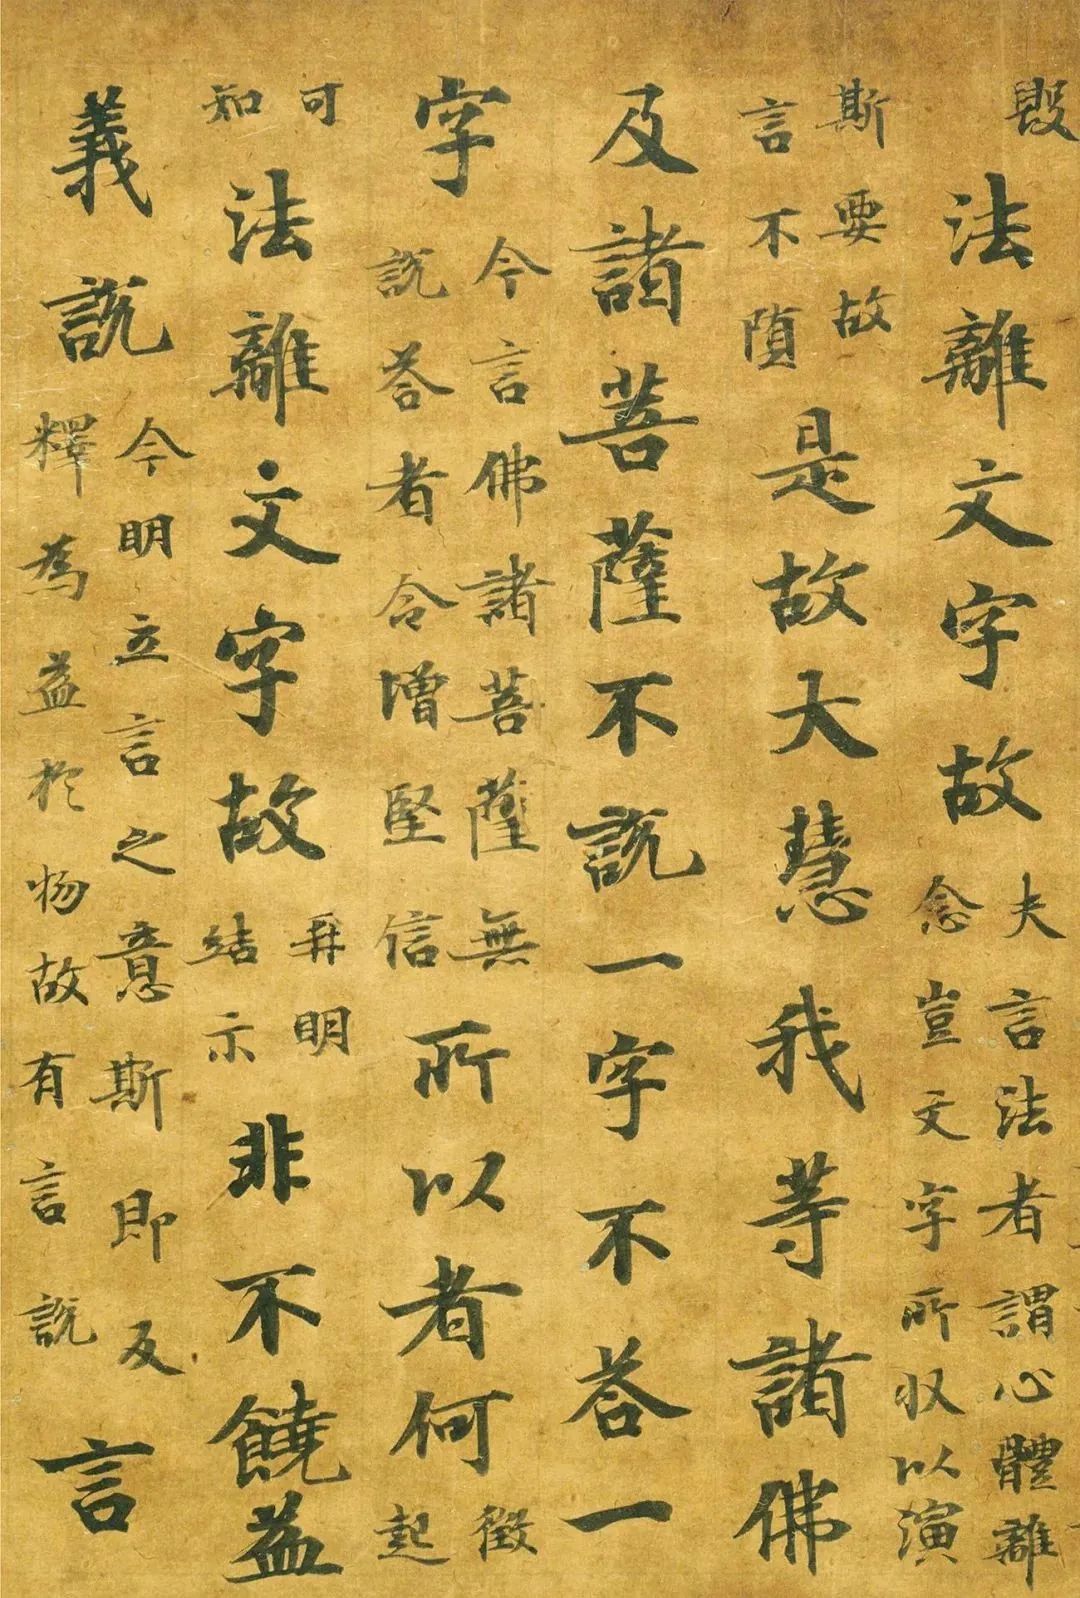 毀法離文字故夫言法者謂心體離念豈文字所収以演
斯要故言不隕是故大慧我等諸佛
及諸菩薩不説一字不荅一
字今言佛諸菩薩無説荅者令增堅信所以者何徵起
可知法離文字故再明結示非不饒益
義説今明立言之意斯即反釋為益於物故有言説言